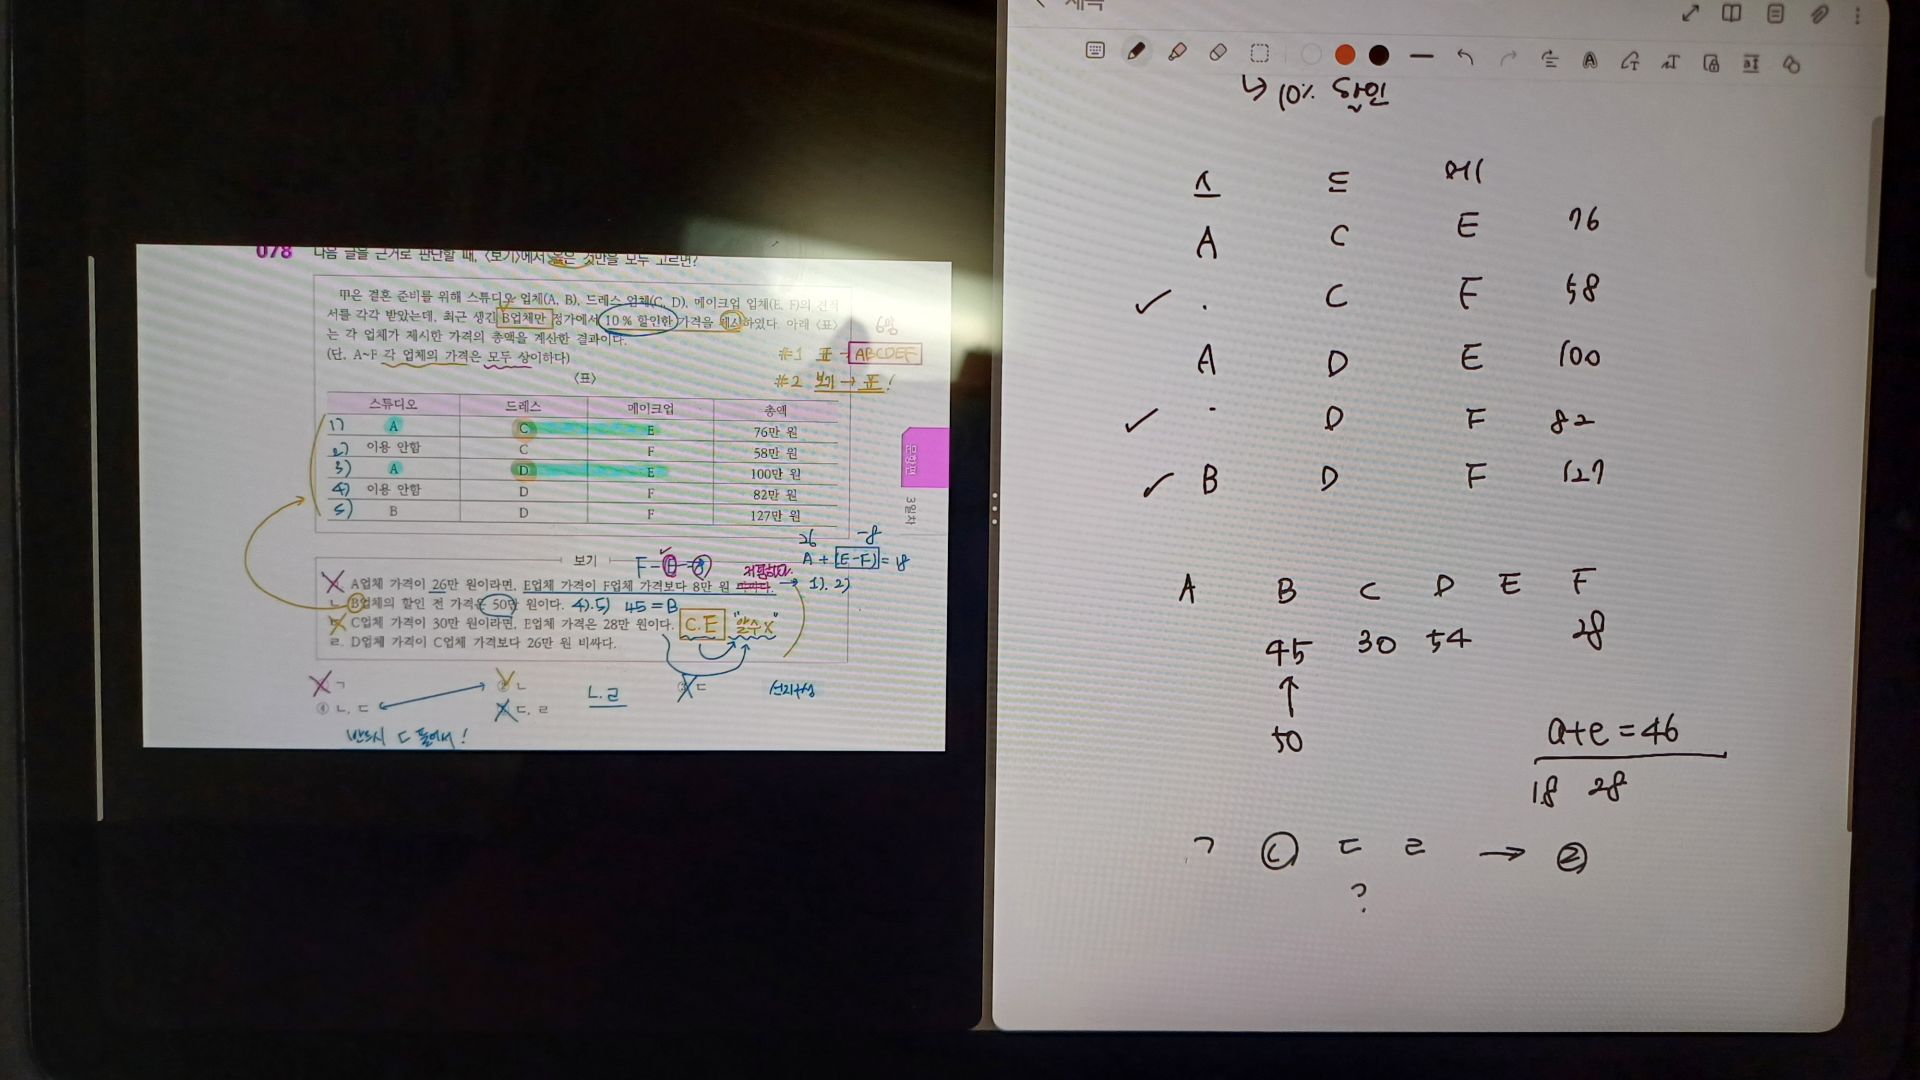 078 다음 글을 근거로 판단할 때, <보기>에서 옳은 것만을 모두 고르면?
甲은 결혼 준비를 위해 스튜디오 업체(A, B), 드레스 업체(C, D), 메이크업 업체(E, F)의 견적
서를 각각 받았는데, 최근 생긴 B업체만 정가에서 10% 할인한 가격을 제시하였다. 아래 <표>
는 각 업체가 제시한 가격의 총액을 계산한 결과이다.
(단, A~F 각 업체의 가격은 모두 상이하다)
6명
#1 표 - ABCDEF
#2 보기 → 표!
<표>
스튜디오 드레스 메이크업 총액
1) A C E 76만 원
2) 이용 안함 C F 58만 원
3) A D E 100만 원
4) 이용 안함 D F 82만 원
5) B D F 127만 원
문항편
3일차
26 -8
A + (E-F) = 18
보기
F-E=8
저렴하다.
ㄱ. A업체 가격이 26만 원이라면, E업체 가격이 F업체 가격보다 8만 원 비싸다. → 1). 2)
ㄴ. B업체의 할인 전 가격은 50만 원이다. 4). 5) 45=B
ㄷ. C업체 가격이 30만 원이라면, E업체 가격은 28만 원이다. C.E "알수X"
ㄹ. D업체 가격이 C업체 가격보다 26만 원 비싸다.
① ㄱ ② ㄴ ③ ㄷ
④ ㄴ, ㄷ ⑤ ㄷ, ㄹ
ㄴ.ㄹ
선지구성
반드시 ㄷ 풀어서!
↳ 10%
스 드 메
A C E 76
✓ · C F 58
A D E 100
✓ · D F 82
✓ B D F 127
A B C D E F
45 30 54 28
↑
50
a+e=46
18 28
ㄱ ㄴ ㄷ ㄹ → ②
?